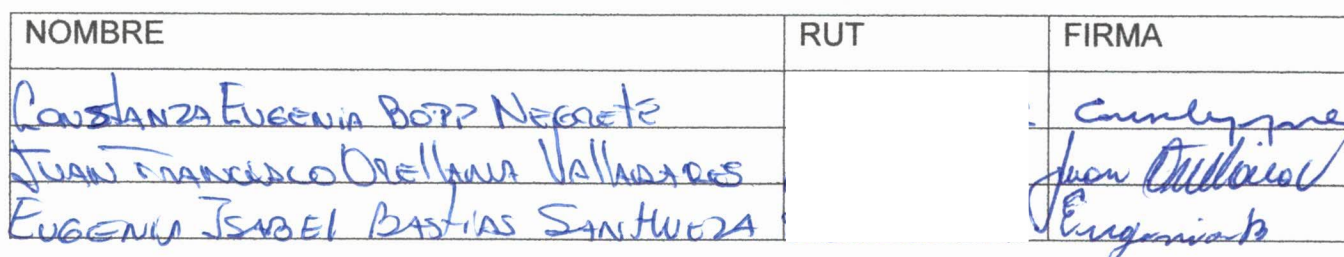 NOMBRE RUT FIRMA
CONSTANZA EUGENIA BOPP NEGRETE
JUAN FRANCISCO ORELLANA VALLADARES Juan Orellana V
EUGENIA ISABEL BASTIAS SANHUEZA Eugenia B